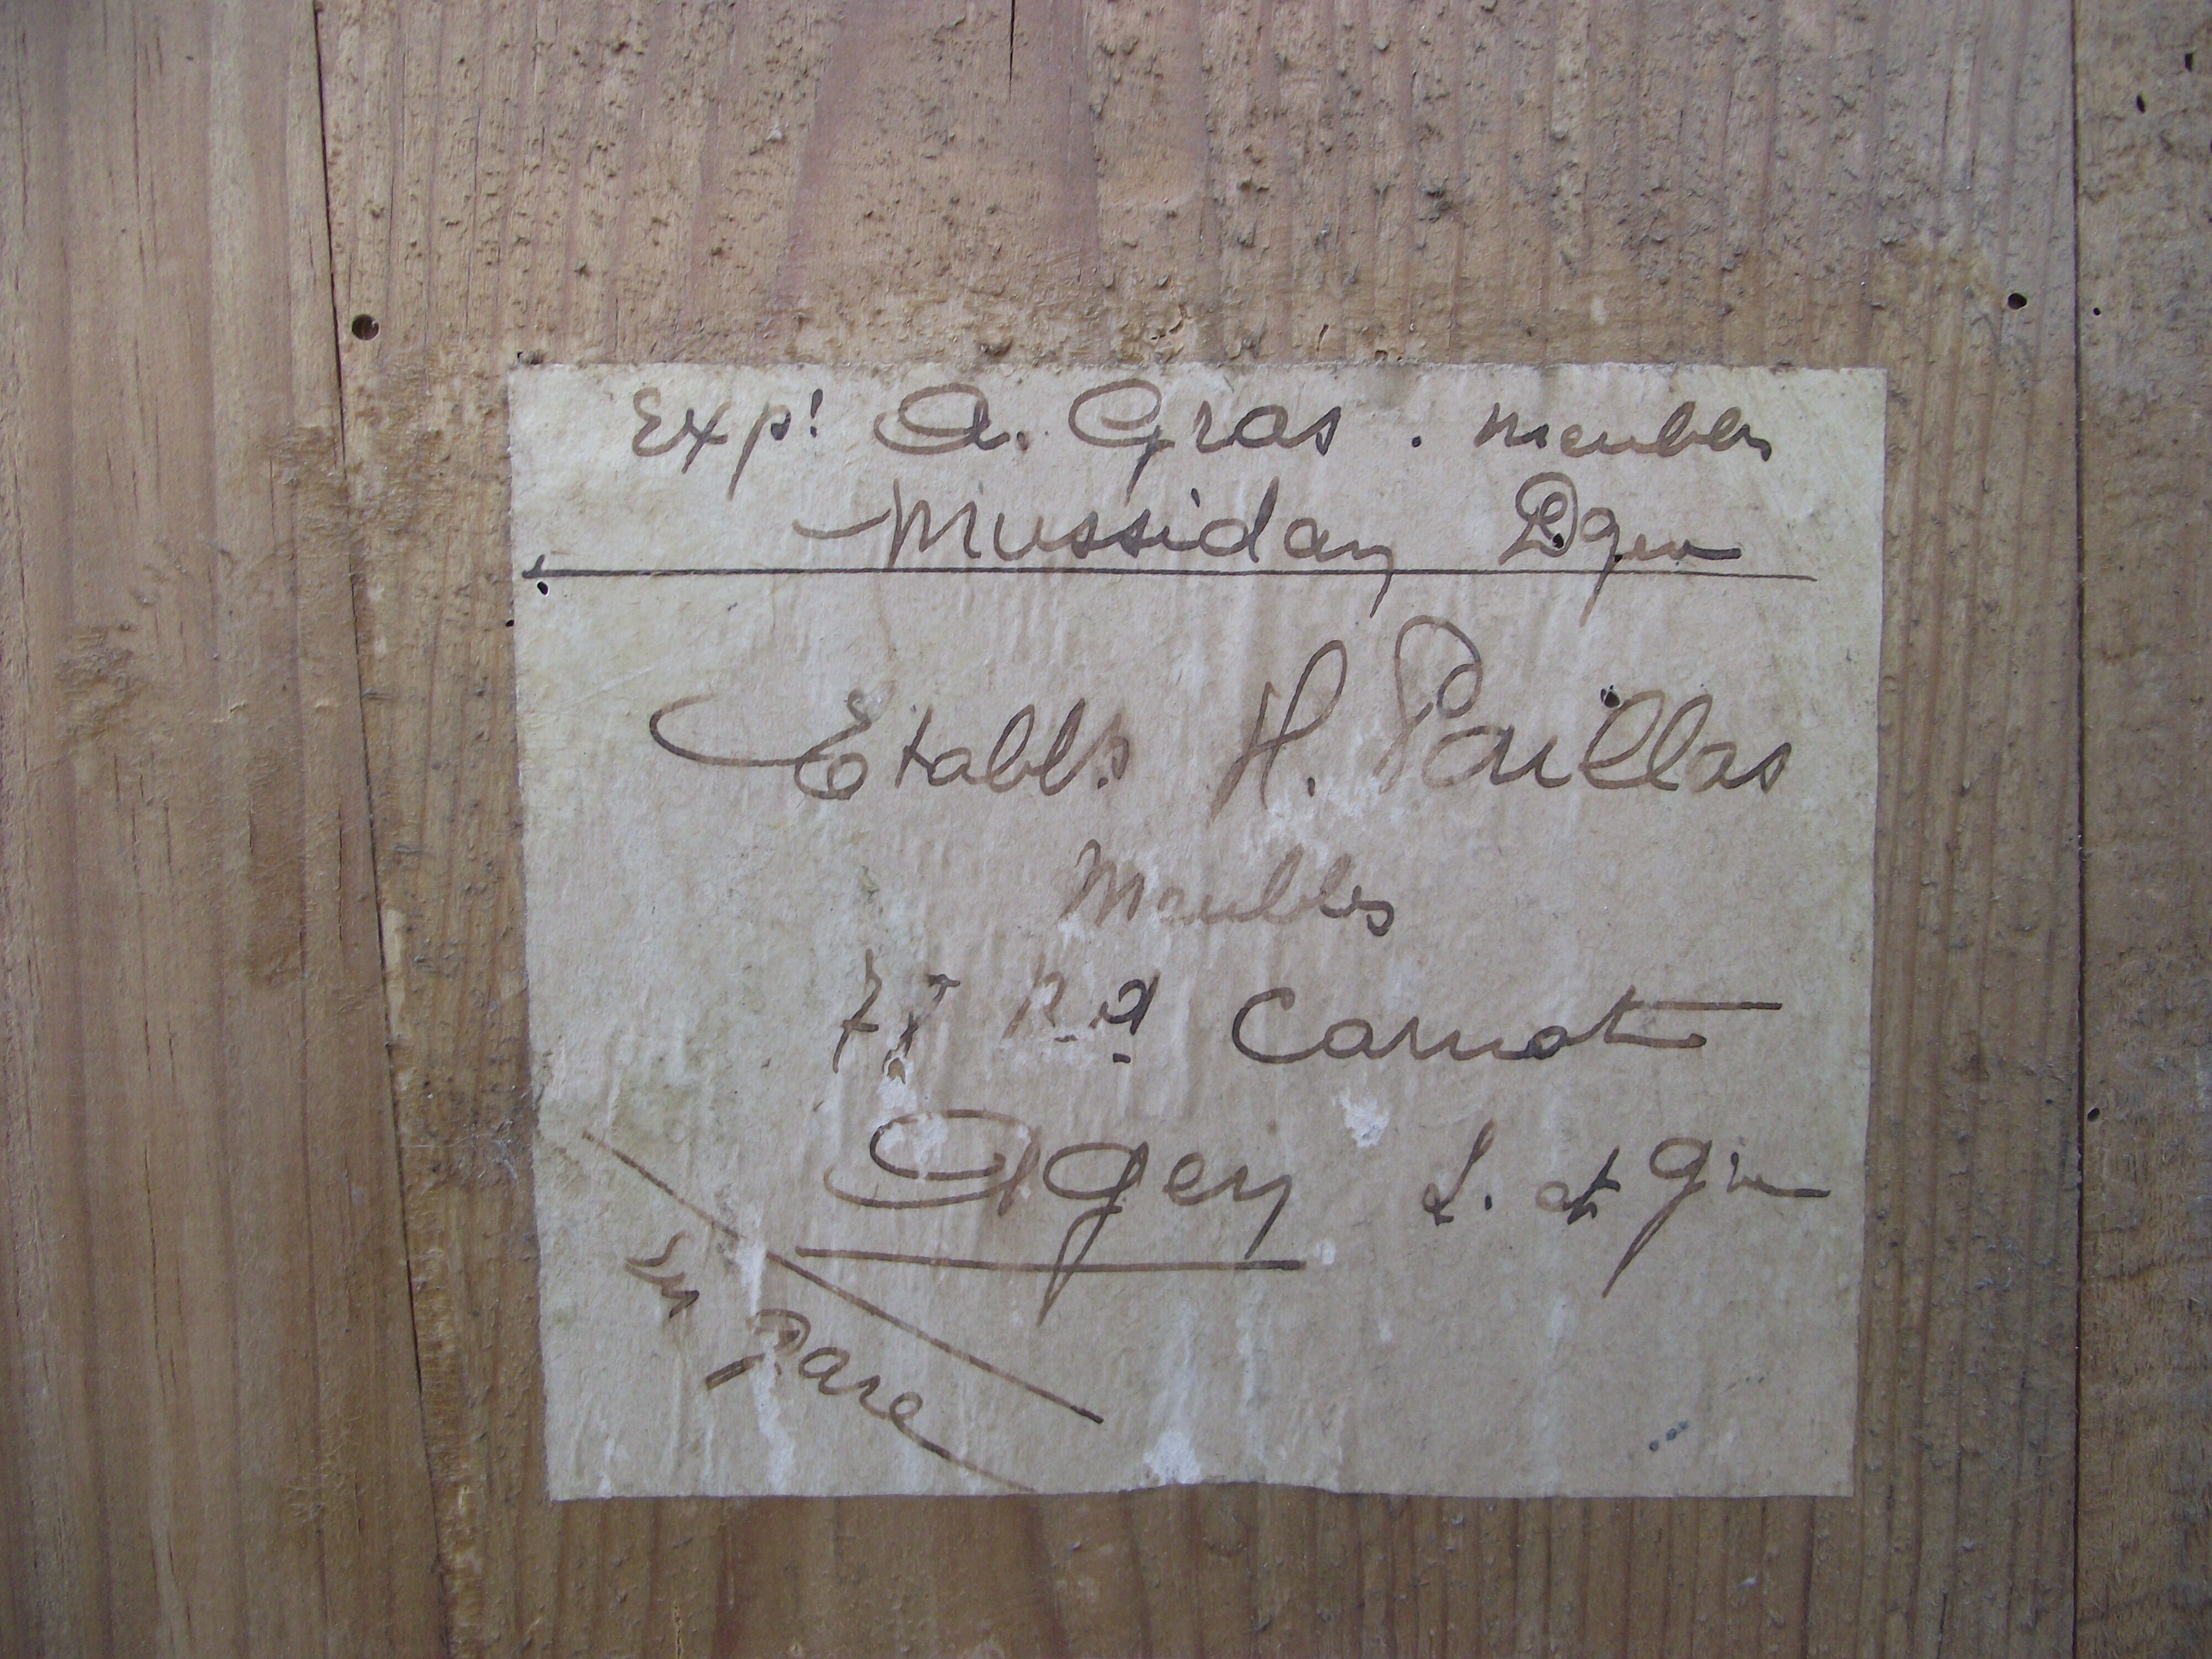 Expr A. Gras. meubles
Mussidan Dgne
Etabls H. Paillas
Meubles
77 Bd Carnot
Agen L. et Gne
En Gare